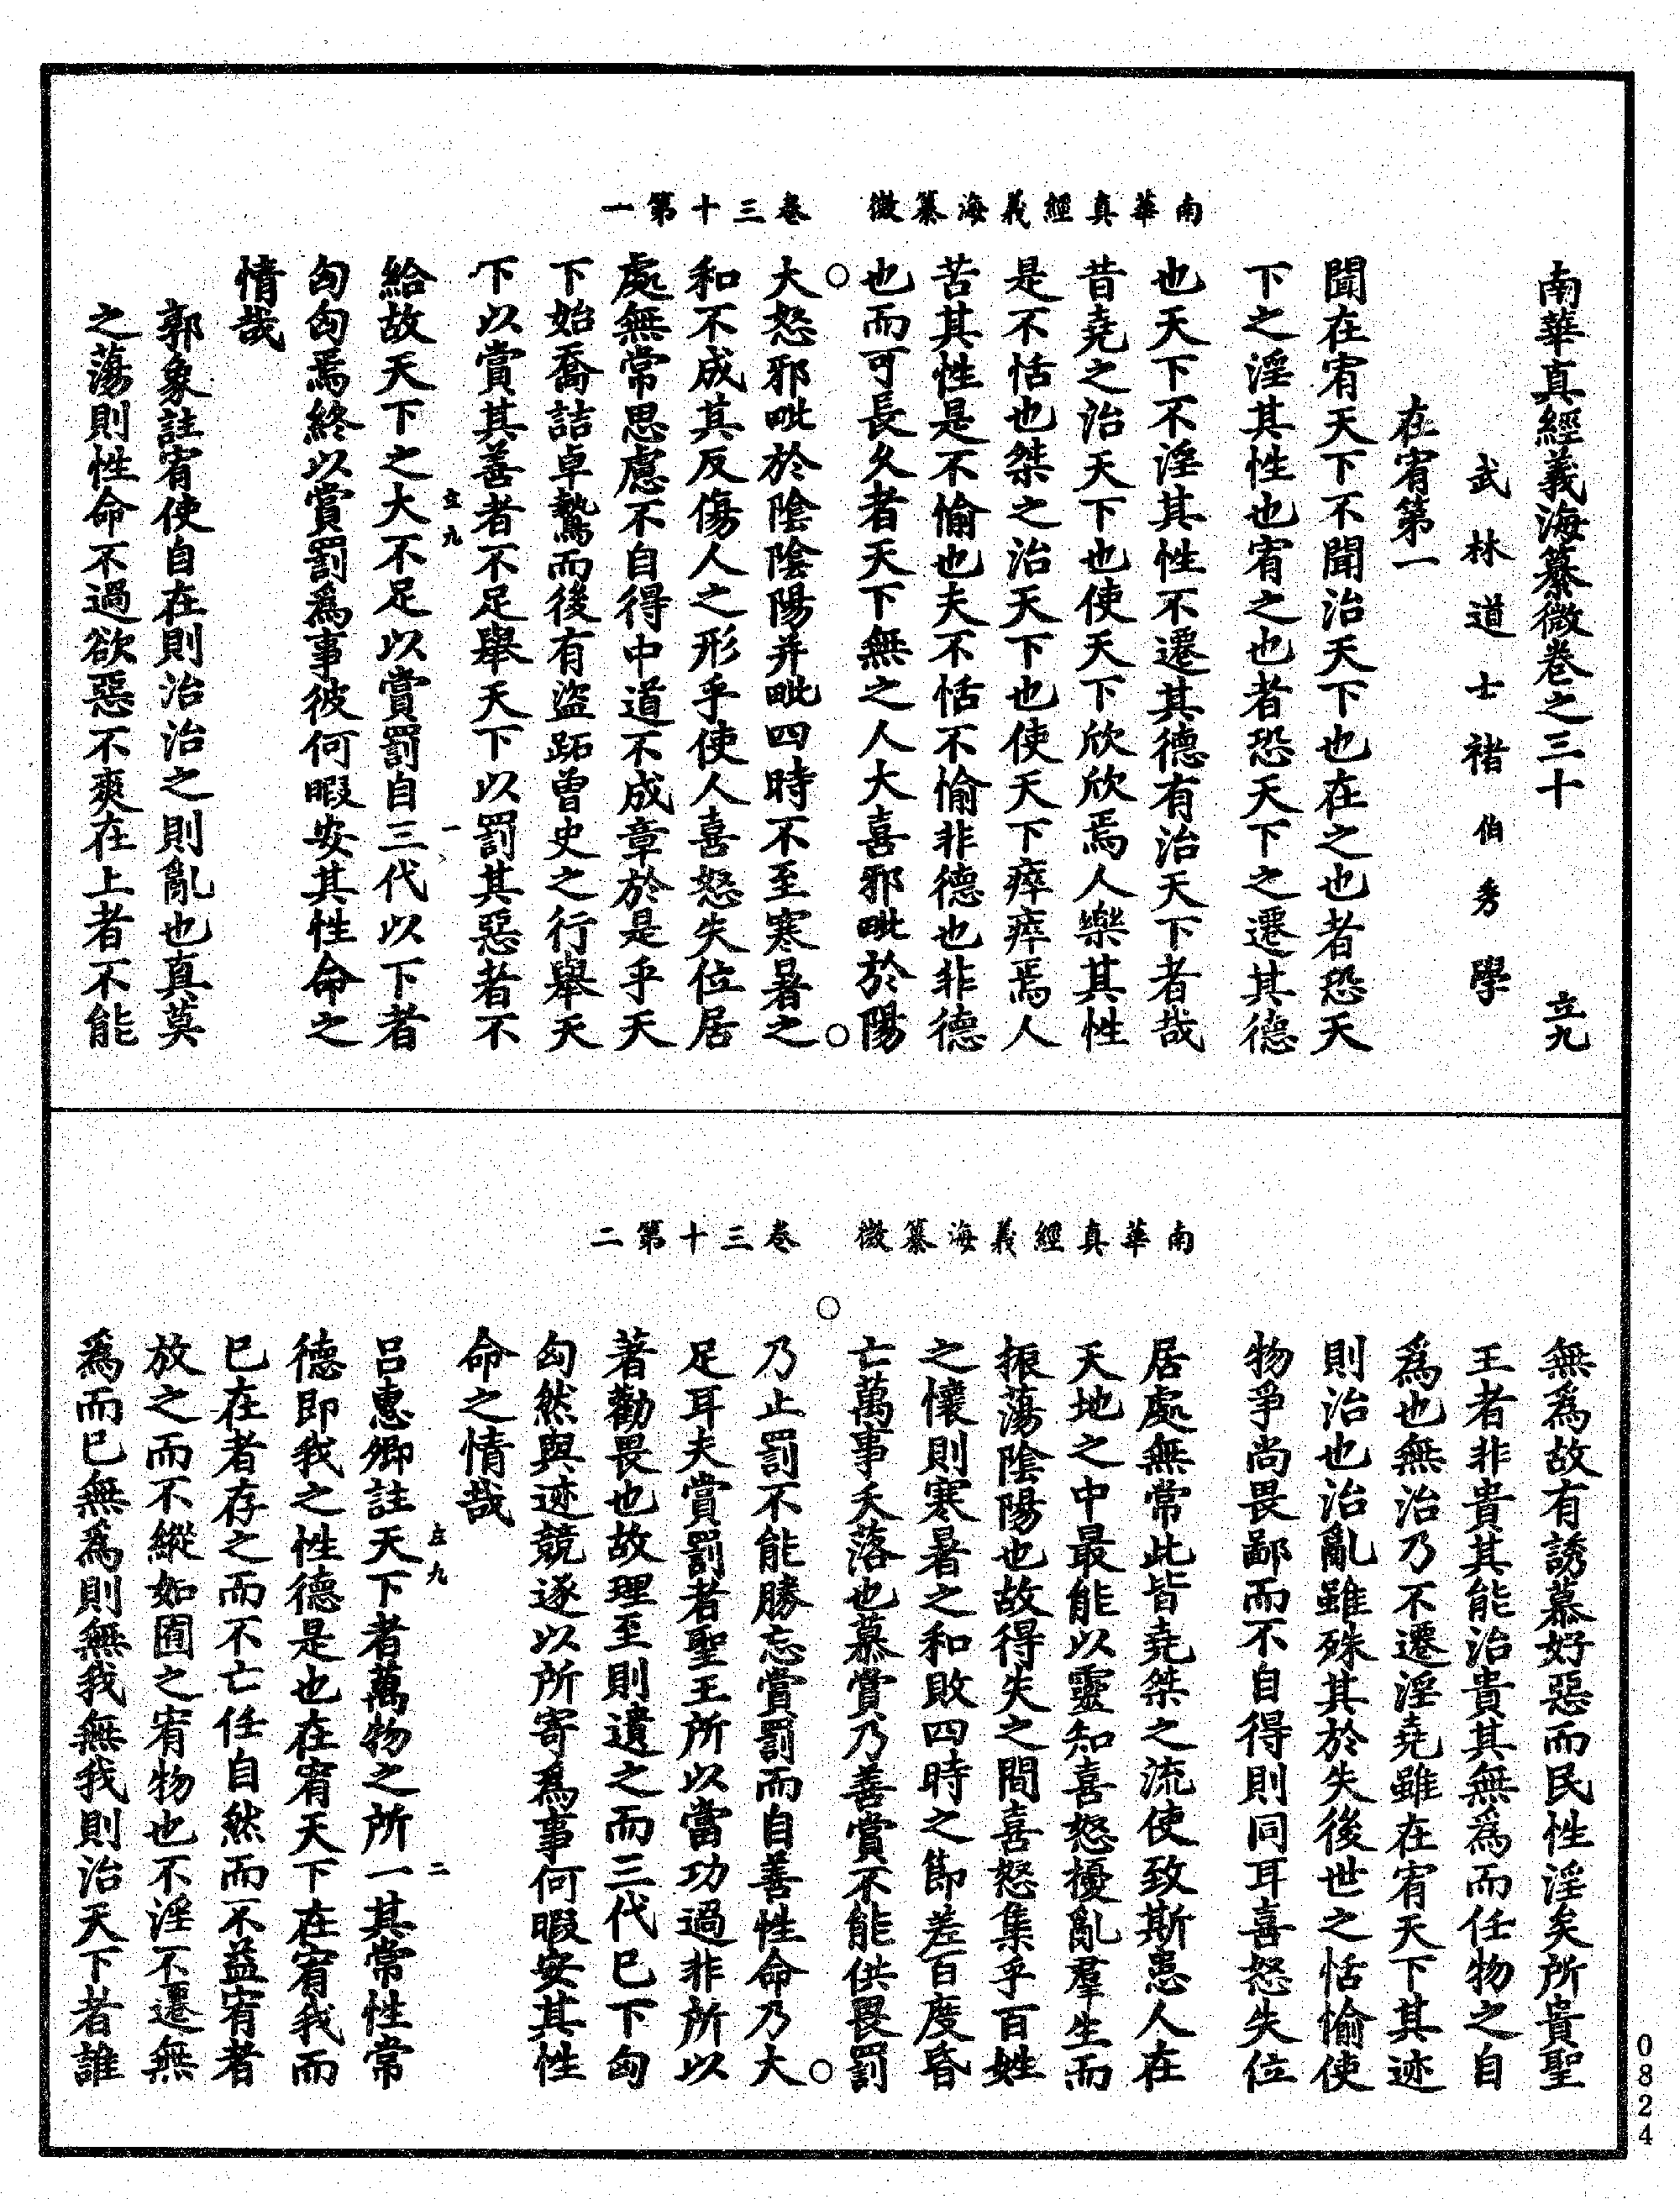 南華真經義海纂微　卷三十第一
南華真經義海纂微卷之三十　立九
武林道士褚伯秀學
在宥第一
聞在宥天下不聞治天下也在之也者恐天
下之淫其性也宥之也者恐天下之遷其德
也天下不淫其性不遷其德有治天下者哉
昔堯之治天下也使天下欣欣焉人樂其性
是不恬也桀之治天下也使天下瘁瘁焉人
苦其性是不愉也夫不恬不愉非德也非德
也而可長久者天下無之人大喜邪毗於陽
大怒邪毗於陰陰陽并毗四時不至寒暑之
和不成其反傷人之形乎使人喜怒失位居
處無常思慮不自得中道不成章於是乎天
下始喬詰卓鷙而後有盜跖曾史之行舉天
下以賞其善者不足舉天下以罰其惡者不
立九　一
給故天下之大不足以賞罰自三代以下者
匈匈焉終以賞罰爲事彼何暇安其性命之
情哉
郭象註宥使自在則治治之則亂也真莫
之蕩則性命不過欲惡不爽在上者不能
南華真經義海纂微　卷三十第二
無爲故有誘慕好惡而民性淫矣所貴聖
王者非貴其能治貴其無爲而任物之自
爲也無治乃不遷淫堯雖在宥天下其迹
則治也治亂雖殊其於失後世之恬愉使
物爭尚畏鄙而不自得則同耳喜怒失位
居處無常此皆堯桀之流使致斯患人在
天地之中最能以靈知喜怒擾亂羣生而
振蕩陰陽也故得失之間喜怒集乎百姓
之懷則寒暑之和敗四時之節差百度昏
亡萬事夭落也慕賞乃善賞不能供畏罰
乃止罰不能勝忘賞罰而自善性命乃大
足耳夫賞罰者聖王所以當功過非所以
著勸畏也故理至則遺之而三代已下匈
匈然與迹競逐以所寄爲事何暇安其性
命之情哉
立九　二
吕惠卿註天下者萬物之所一其常性常
德即我之性德是也在宥天下在宥我而
已在者存之而不亡任自然而不益宥者
放之而不縱如囿之宥物也不淫不遷無
爲而已無爲則無我無我則治天下者誰
0824